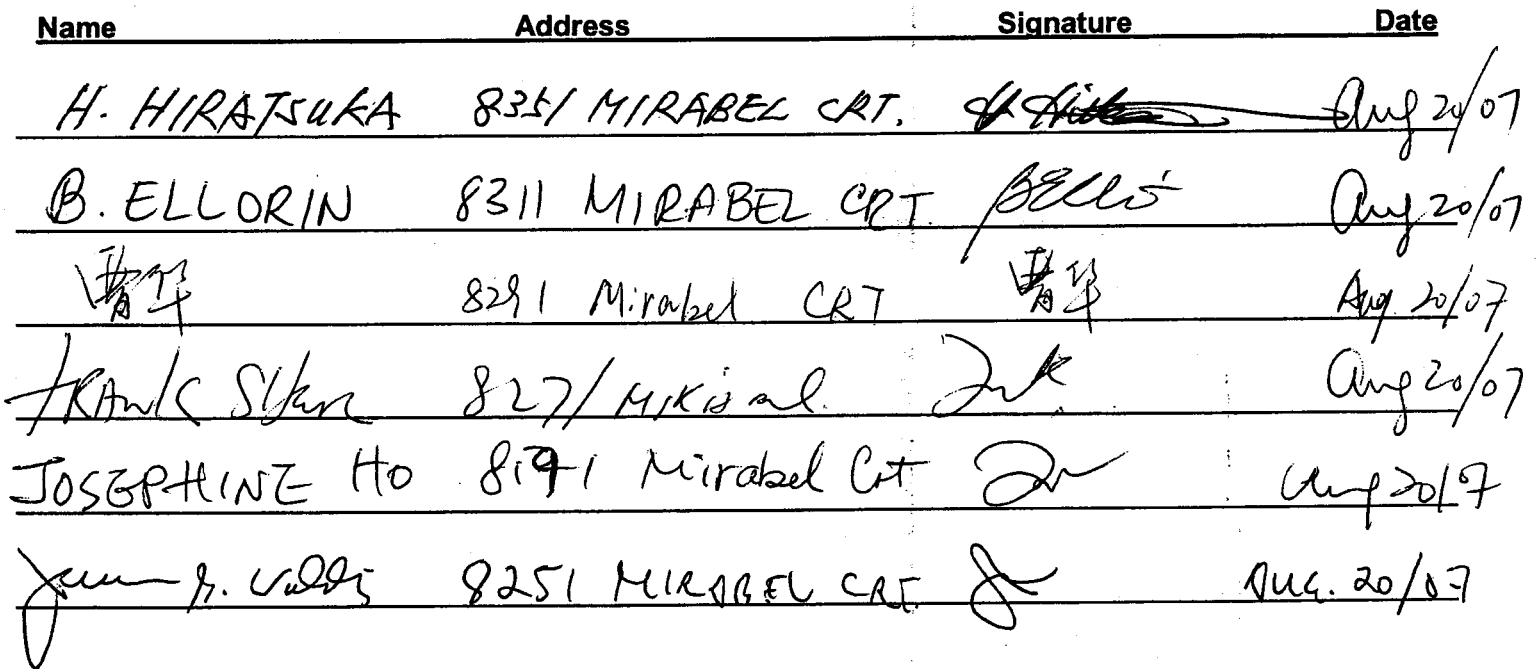 Name Address Signature Date
H. HIRATSUKA 8351 MIRABEL CRT. Aug 20/07
B. ELLORIN 8311 MIRABEL CRT. Aug 20/07
曹华 8291 Mirabel CRT 曹华 Aug. 20/07
FRANK 8271 Aug 20/07
JOSEPHINE HO 8191 Mirabel Crt Aug 20/7
8251 MIRABEL CRT. AUG. 20/07